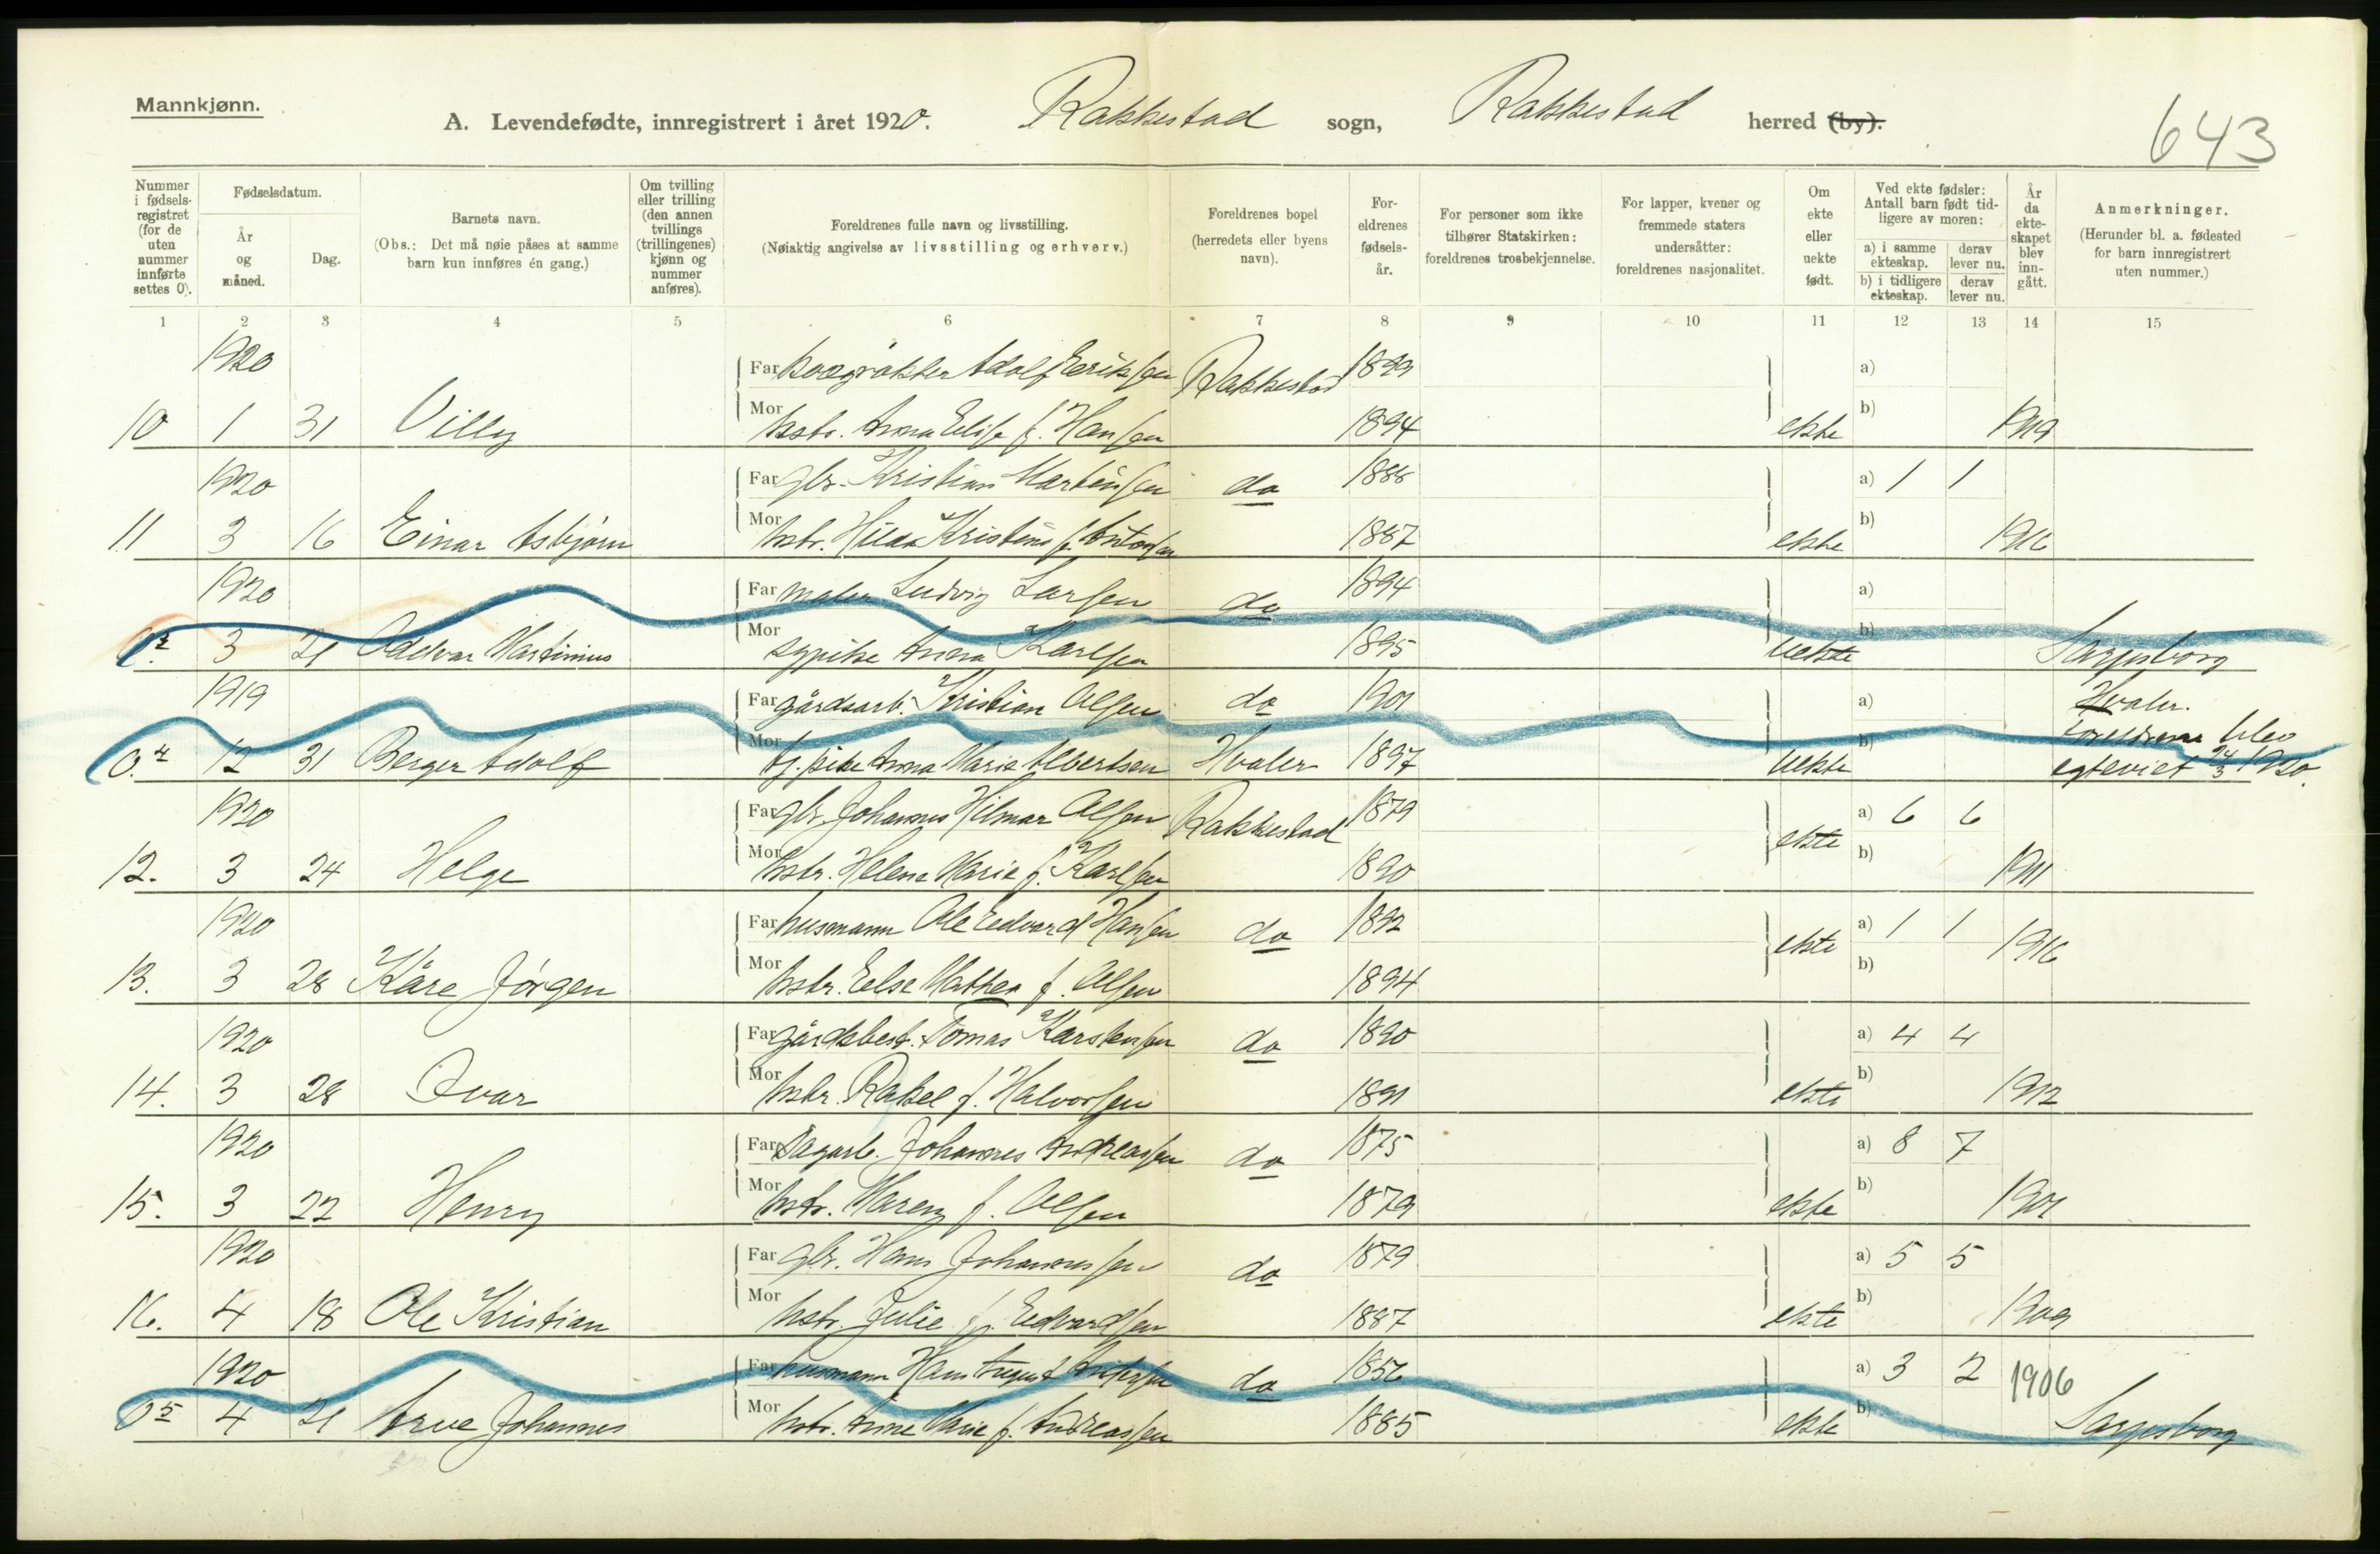 Mannkjønn.
A. Levendefødte, innregistrert i året 1920. Rakkestad sogn, Rakkestad herred (by).
643
Nummer i fødsels-registret (for de uten nummer innførte settes 0).
Fødselsdatum.
År og måned.
Dag.
Barnets navn.
(Obs.: Det må nøie påses at samme barn kun innføres én gang.)
Om tvilling eller trilling (den annen tvillings (trillingenes) kjønn og nummer anføres).
Foreldrenes fulle navn og livsstilling.
(Nøiaktig angivelse av livsstilling og erhverv.)
Foreldrenes bopel (herredets eller byens navn).
For-eldrenes fødsels-år.
For personer som ikke tilhører Statskirken: foreldrenes trosbekjennelse.
For lapper, kvener og fremmede staters undersåtter: foreldrenes nasjonalitet.
Om ekte eller uekte født.
Ved ekte fødsler: Antall barn født tid-ligere av moren:
a) i samme ekteskap. derav lever nu.
b) i tidligere ekteskap. derav lever nu.
År da ekte-skapet blev inn-gått.
Anmerkninger.
(Herunder bl. a. fødested for barn innregistrert uten nummer.)
1 2 3 4 5 6 7 8 9 10 11 12 13 14 15
1920 Far Adolf Eriksen Rakkestad 1899 a)
10 1 31 Villy Mor hstr. Anna Elise f. Hansen 1894 ekte b) 1919
1920 Far gbr. Kristian Martinsen do 1886 a) 1 1
11 3 16 Einar Asbjørn Mor hstr. Hilda Kristine f. Antonsen 1887 ekte b) 1916
1920 Far maler Ludvig Larsen do 1894 a)
0.2 3 21 Oddvar Martinius Mor sypike Anna Karlsen 1895 uekte b) Sarpsborg
1919 Far gårdsarb. Kristian Olsen do 1901 a) Hvaler.
0.4 12 31 Berger Adolf Mor tj.pike Anna Marie Albertsen Hvaler 1897 uekte b) Foreldrene blev
egteviet 24/3 1920.
1920 Far gbr. Johannes Hilmar Olsen Rakkestad 1879 a) 6 6
12. 3 24 Helge Mor hstr. Helena Marie f. Karlsen 1890 ekte b) 1911
1920 Far husmann Ole Edvard Hansen do 1892 a) 1 1
13. 3 28 Kåre Jørgen Mor hstr. Else Mathea f. Olsen 1894 ekte b) 1916
1920 Far gårdsbest. Tomas Karstensen do 1890 a) 4 4
14. 3 28 Ivar Mor hstr. Rakel f. Halvorsen 1891 ekte b) 1912
1920 Far Dagarb. Johannes Andreassen do 1875 a) 8 7
15. 3 22 Henry Mor hstr. Maren f. Olsen 1879 ekte b) 1901
1920 Far gbr. Hans Johannessen do 1879 a) 5 5
16. 4 18 Ole Kristian Mor hstr. Julie f. Edvardsen 1887 ekte b) 1909
1920 Far husmann Hans August do 1856 a) 3 2 1906
05 4 21 Arve Johannes Mor hstr. Anne Marie f. Andreassen 1885 ekte b) Sarpsborg